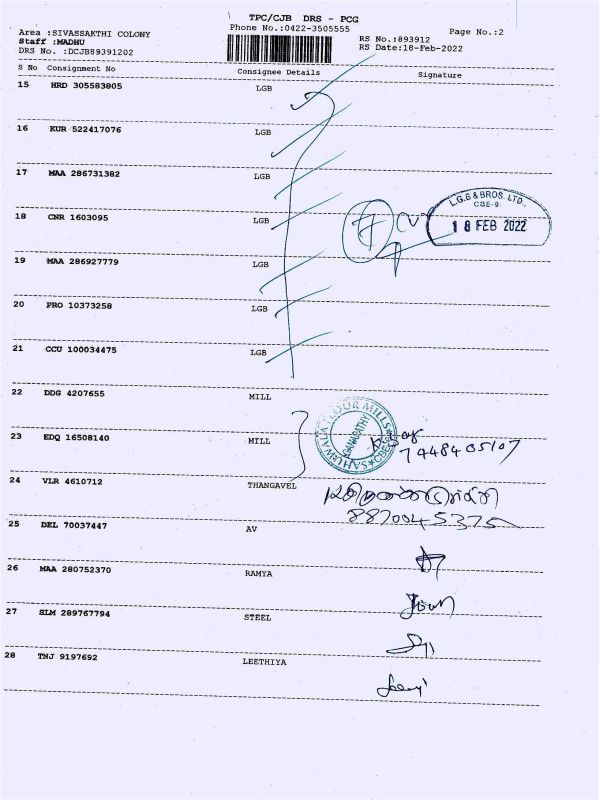 TPC/CJB DRS - PCG
Area :SIVASSAKTHI COLONY Phone No.:0422-3505555 Page No.:2
Staff :MADHU RS No.:893912
DRS No. :DCJB89391202 RS Date:18-Feb-2022
S No Consignment No Consignee Details Signature
15 HRD 305583805 LGB
16 KUR 522417076 LGB
17 MAA 286731382 LGB
18 CNR 1603095 LGB
L.G.B & BROS. LTD.,
CBE-9
18 FEB 2022
19 MAA 286927779 LGB
20 PRO 10373258 LGB
21 CCU 100034475 LGB
22 DDG 4207655 MILL
23 EDQ 16508140 MILL
GANAPATHY
7448405107
24 VLR 4610712 THANGAVEL
8870045375
25 DEL 70037447 AV
26 MAA 280752370 RAMYA
27 SLM 289767794 STEEL
28 TNJ 9197692 LEETHIYA